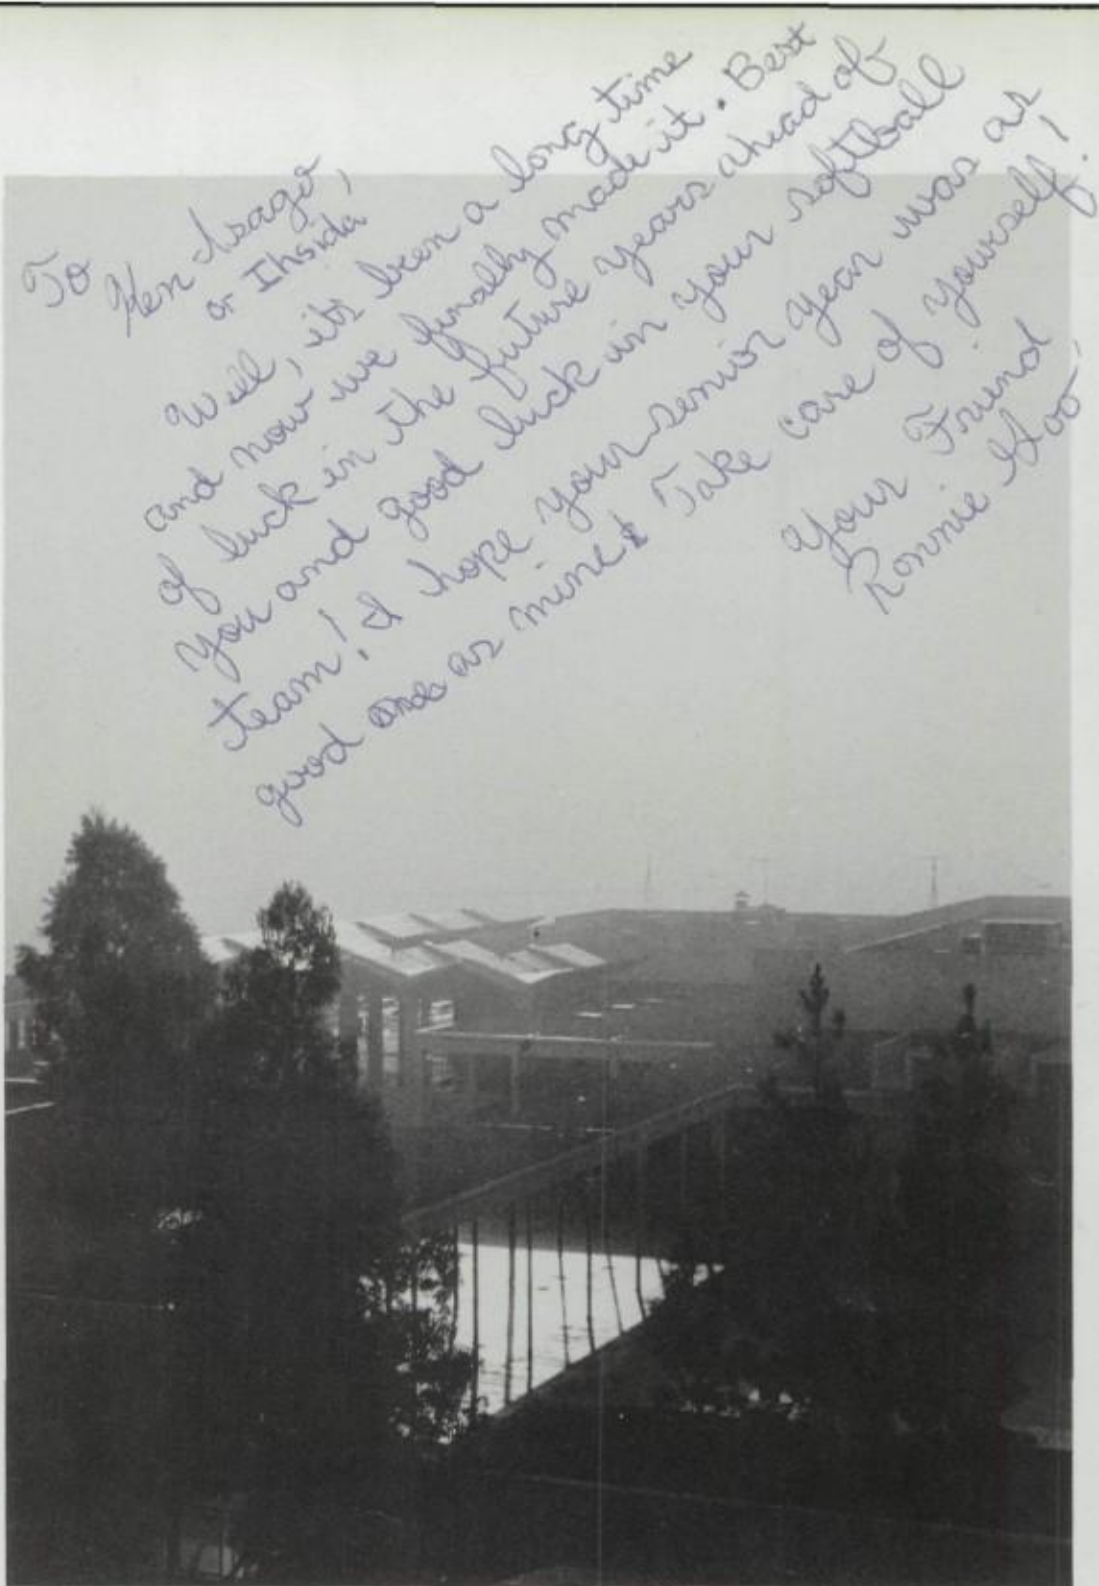 To Ken Isago,
or Ihsida
Well, its been a long time
and now we finally made it. Best
of luck in the future years ahead of
you and good luck in your softball
team! I hope your senior year was as
good as mine! Take care of yourself!
Your Friend
Ronnie Goo